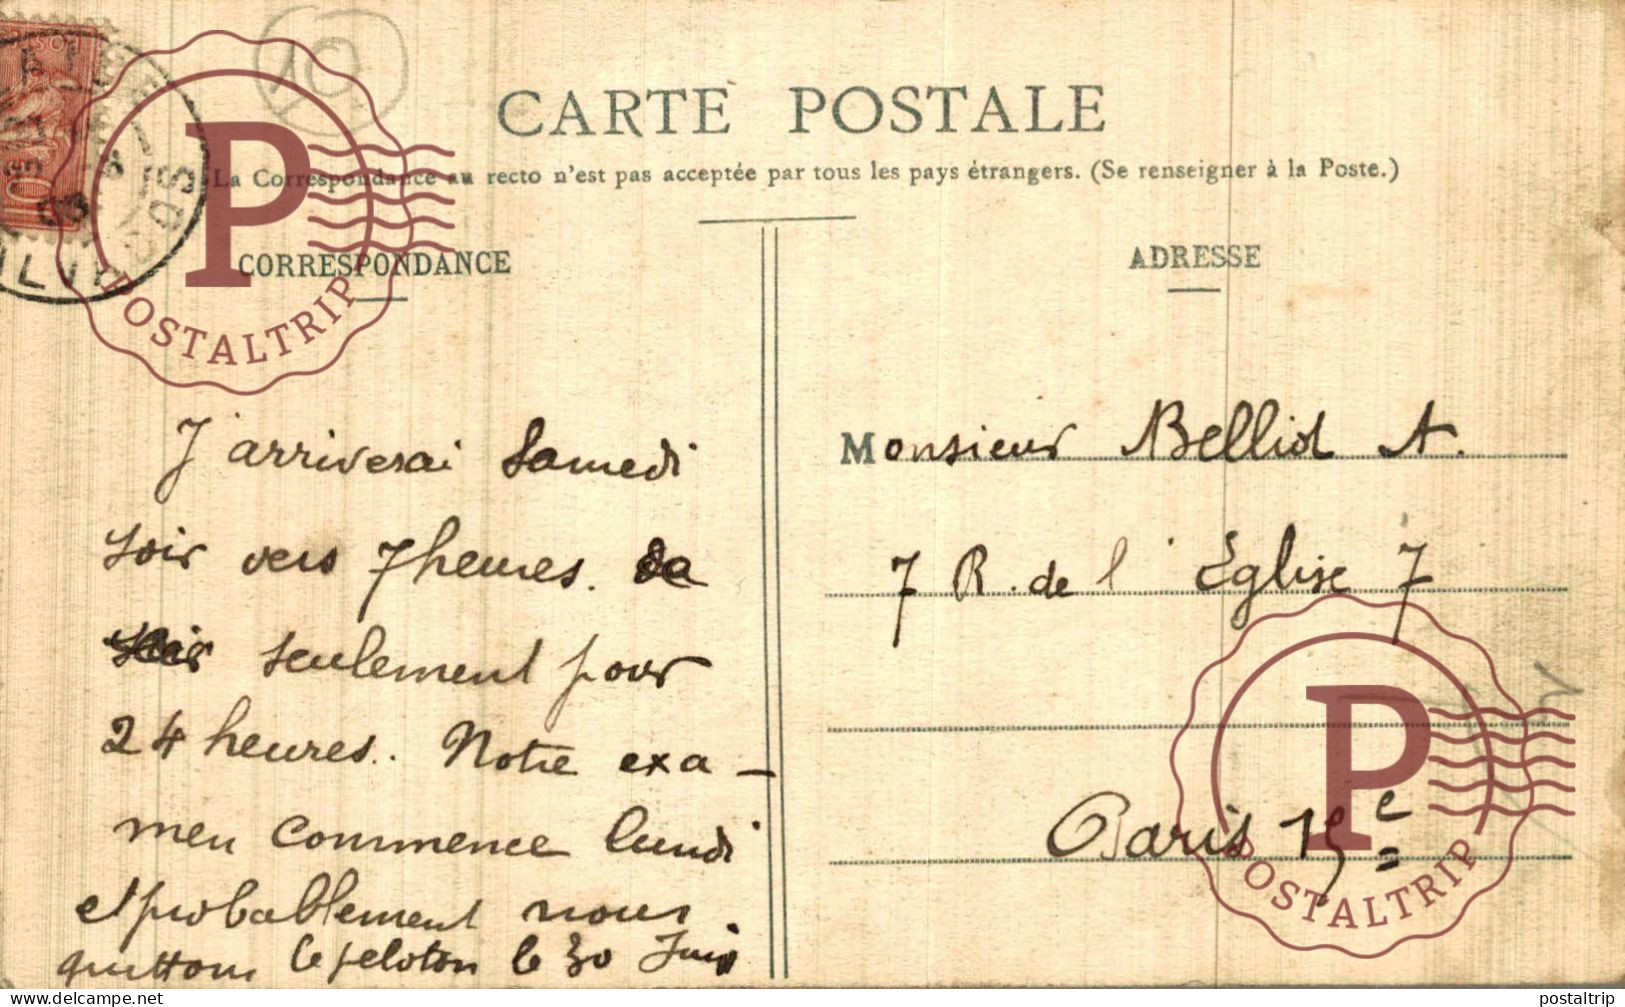 10
CARTE POSTALE
La Correspondance au recto n'est pas acceptée par tous les pays étrangers. (Se renseigner à la Poste.)
CORRESPONDANCE
J'arriverai Samedi
soir vers 7 heures.
seulement pour
24 heures.. Notre exa-
men commence lundi
et probablement nous
quittons le peloton le 30 Juin
ADRESSE
Monsieur Belliot A.
7 R. de l'Eglise 7
Paris 15e
POSTALTRIP
POSTALTRIP
delcampe.net
postaltrip